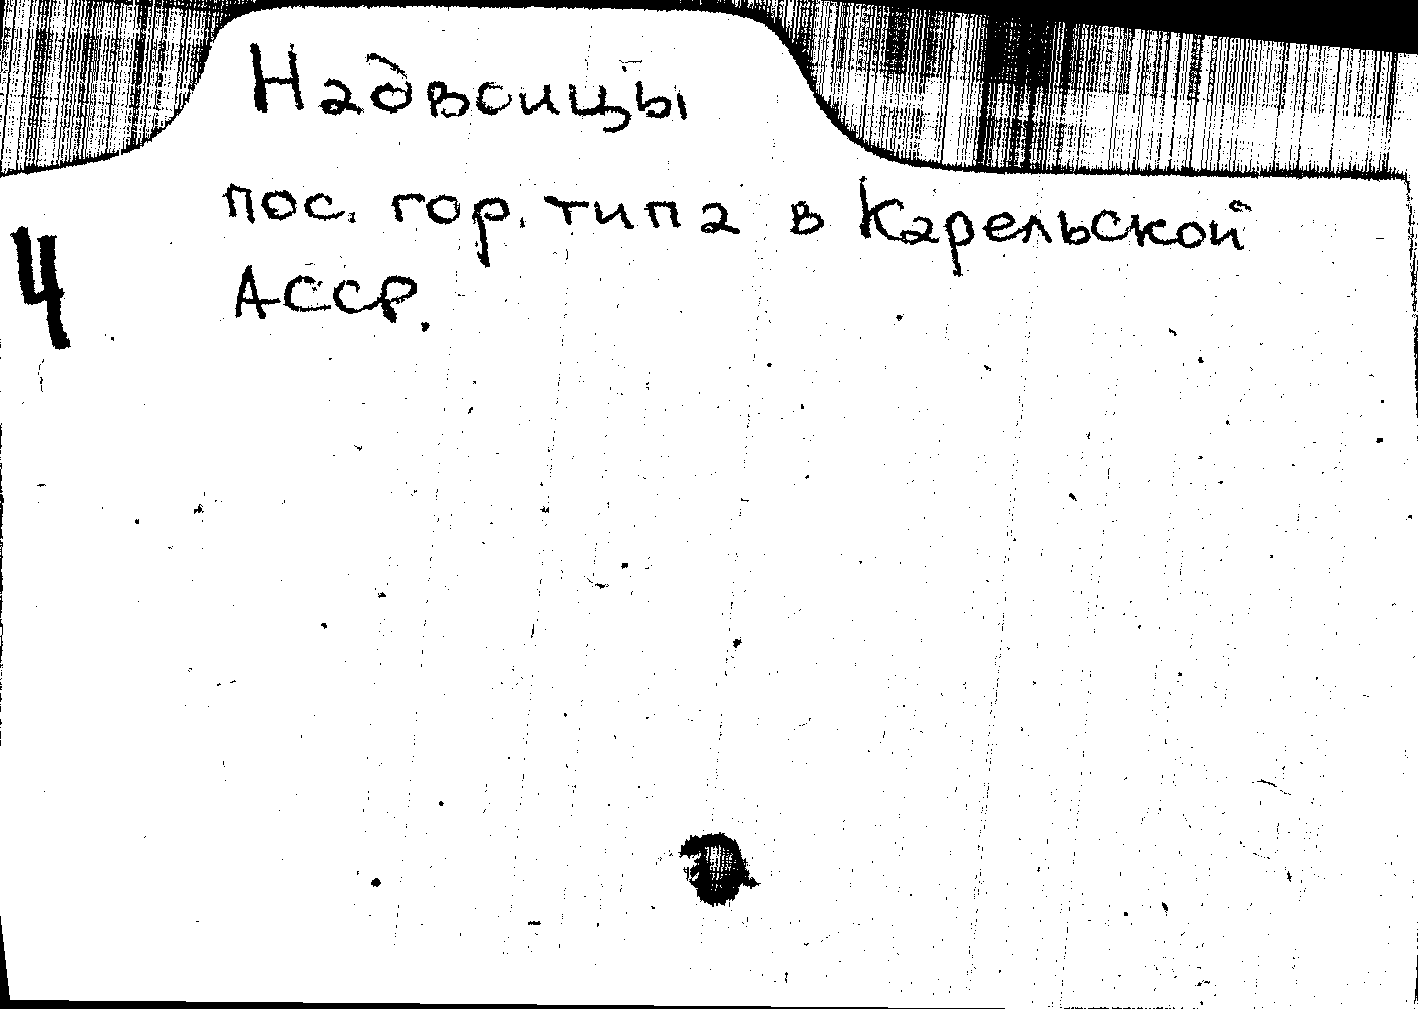 Надвоицы
пос. гор. типа в Карельской
АССР.
4